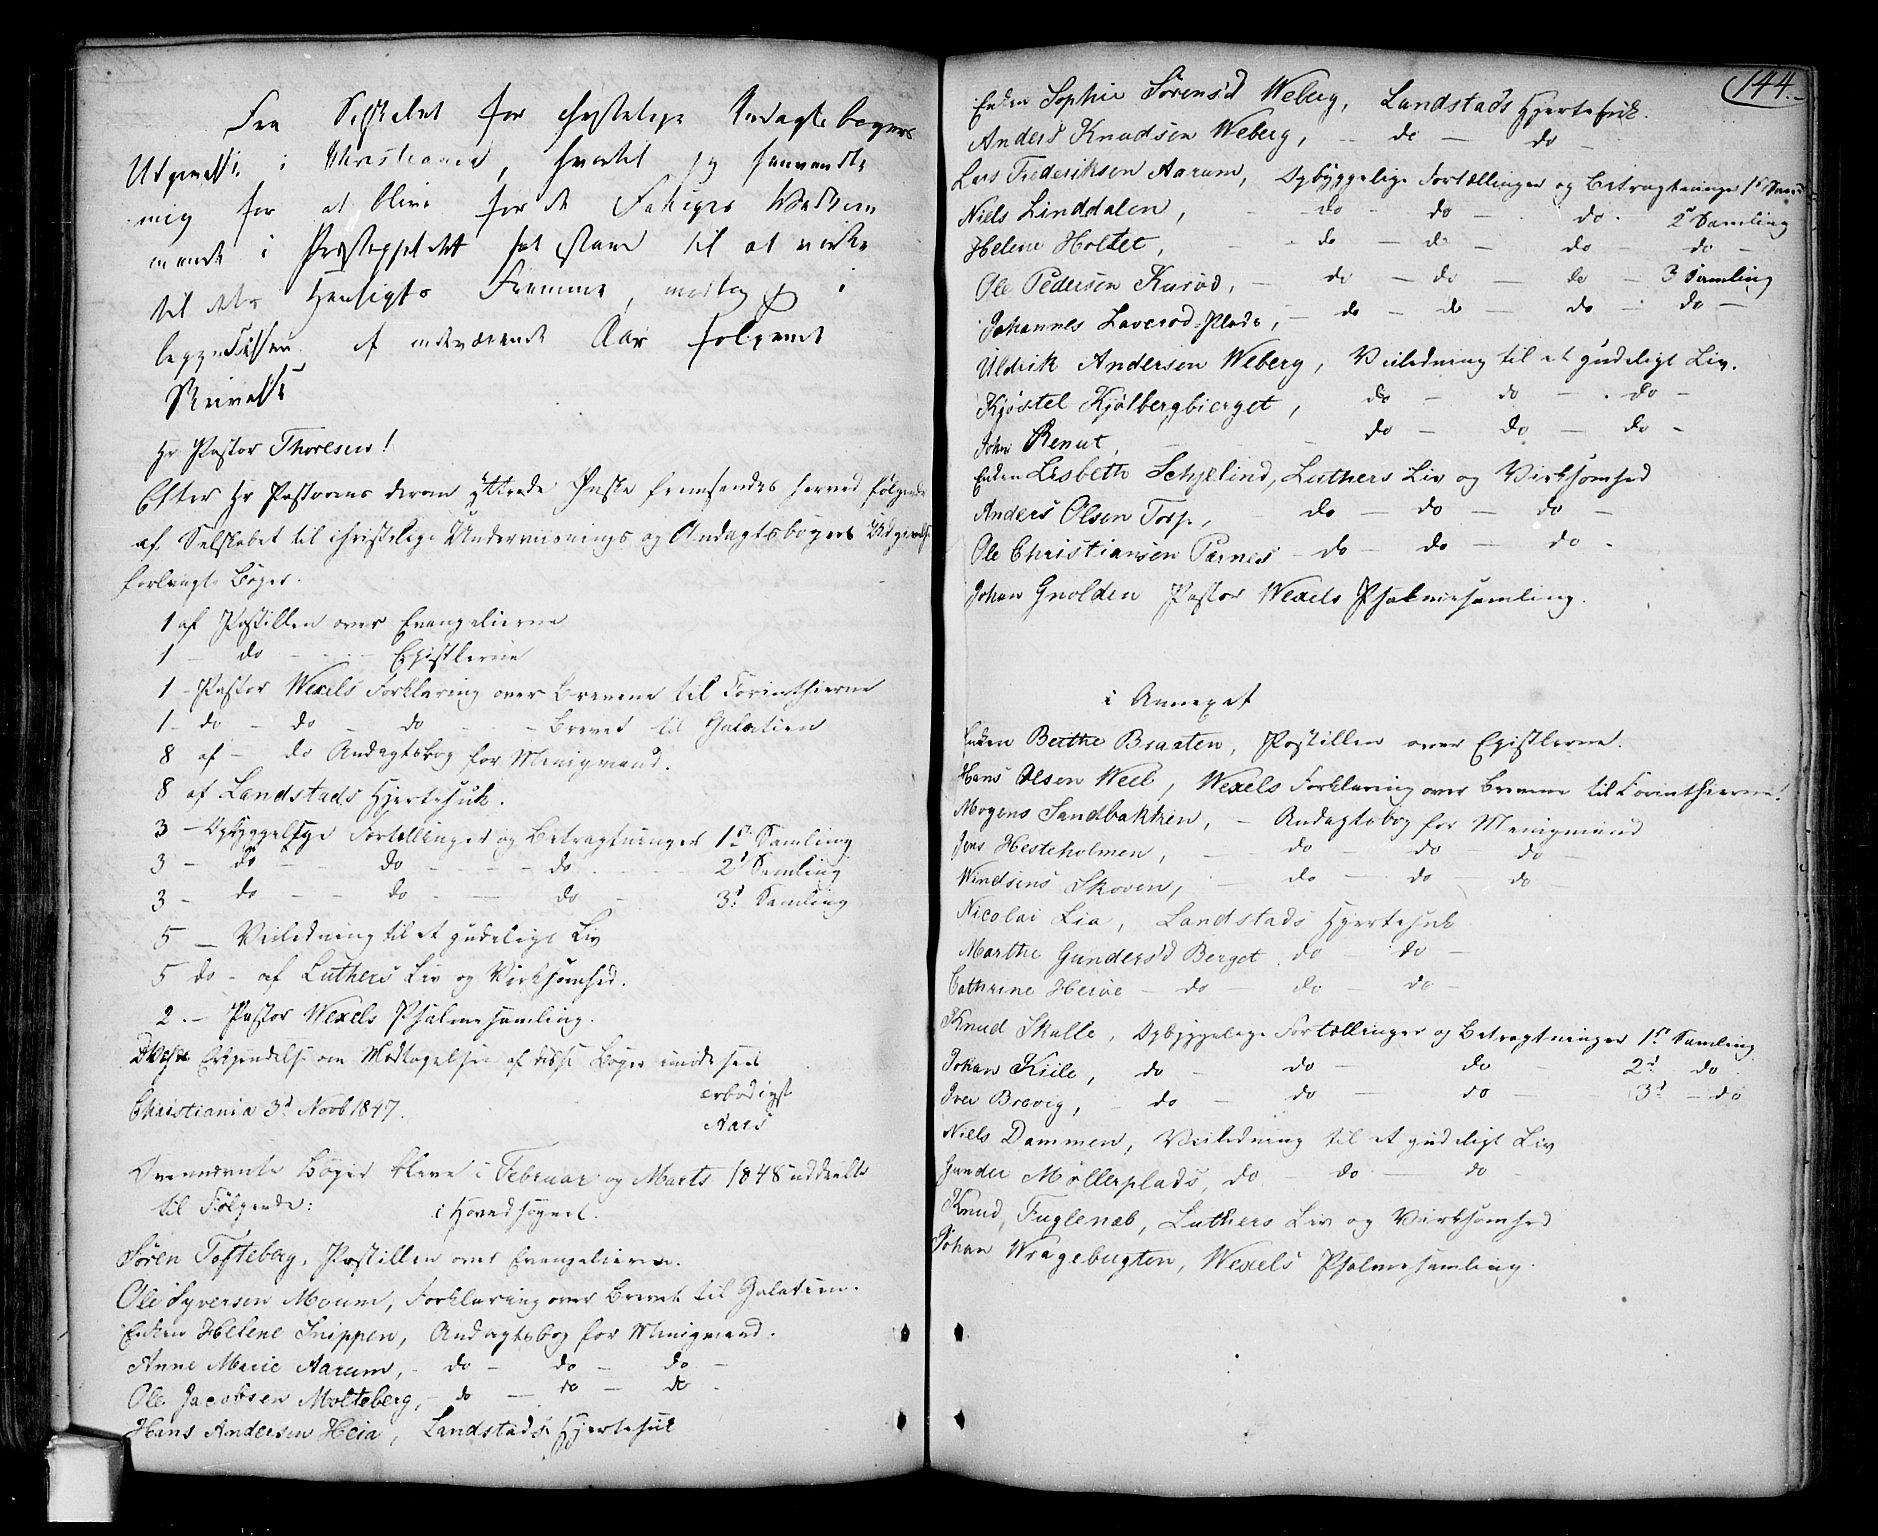 Fra Selskabet for christelige Andagtsbøgers
Udgivelse i Christiania, hvortil jeg henvendte
mig for at blive for de Fattiges Vedkom
mende i Præstegjeldet sat istand til at virke
til dets Hensigts Fremme, modtog jeg i
af indeværende Aar følgende
Skrivelse
Hr Pastor Thoresen!
Efter Hr Pastorens derom yttrede Ønske fremsendes herved følgende
af Selskabet til christelige Underviisnings og Andagtsbøgers Udgivelse
forlangte Bøger.
1 af Postillen over Evangelierne
1 — do — — Epistlerne
1 - Pastor Wexels Forklaring over Brevene til Corinthierne
1 - do — do — do — - Brevet til Galatien
8 af — do Andagtsbog for Menigmand.
8 af Landstads Hjertesuk.
3 — Opbyggelige Fortællinger og Betragtninger 1ste Samling
3 — do — do - - - - do - - - 2d Samling
3 - do - - do - — do - 3d Samling
5 — Veiledning til et gudeligt Liv
5 do - af Luthers Liv og Virksomhed.
2. - Pastor Wexels Psalmesamling.
Erkjendelse om Modtagelsen af disse Bøger imødesees
ærbødigst
Christiania 3d Novb 1847.
Aars
Ovennævnte Bøger bleve i Februar og Marts 1848 uddeelte
til Følgende: i Hovedsognet.
Søren Tofteberg, Postillen over Evangelierne.
Ole Syversen Moum, Forklaring over Brevet til Galatien.
Enken Helene Snippen, Andagtsbog for Menigmand.
Anne Marie Aarum, - do — do — do —
Ole Jacobsen Molteberg, - do — do — do -
Hans Andersen Heia, Landstads Hjertesuk
144.
Enken Sophie Sørensd Weberg, Landstads Hjertesuk.
Anders Knudsen Weberg, -- do — do -
Lars Frederiksen Aarum, Opbyggelige Fortællinger og Betragtninger 1ste Saml
Niels Linddalen, - do - do — do - 2d Samling
Helene Holtet, - do — do — do — do —
Ole Pedersen Kurød, — do — do — do — 3 Samling
Johannes Laverød-Plads, — do — do — do — do —
Uldrik Andersen Weberg, Veiledning til et gudeligt Liv.
Kjøstel Kjølbergbierget, do — do — do —
John Renut, — do — do — do -
Enken Lisbeth Schjelind, Luthers Liv og Virksomhed
Anders Olsen Torp, - do — do — do —
Ole Christiansen Parnes - do — do — do -
Johan Gnolden Pastor Wexels Psalmesamling.
i Annexet
Enken Berthe Braaten, Postillen over Epistlerne.
Hans Olsen Weel, Wexels Forklaring over Brevene til Corinthierne.
Mogens Sandbakken, — Andagtsbog for Menigmand
Jens Hesteholmen, — do — do — do —
Windsens Skoven, — do — do — do
Nicolai Lia, Landstads Hjertesuk
Marthe Gundersd Berget . do — do —
Cathrine Heiøe — do — do — do -
Knud Skalle, Opbyggelige Fortællinger og Betragtninger 1ste Samling
Johan Kiile, do — do — do 2d do
Iver Brevig, — do — do — do — 3d — do
Niels Dammen, Veiledning til et gudeligt Liv
Gunder Møllerplads, do - do — do -
Knud Fuglenæb, Luthers Liv og Virksomhed
Johan Wragebugten, Wexels Psalmesamling.